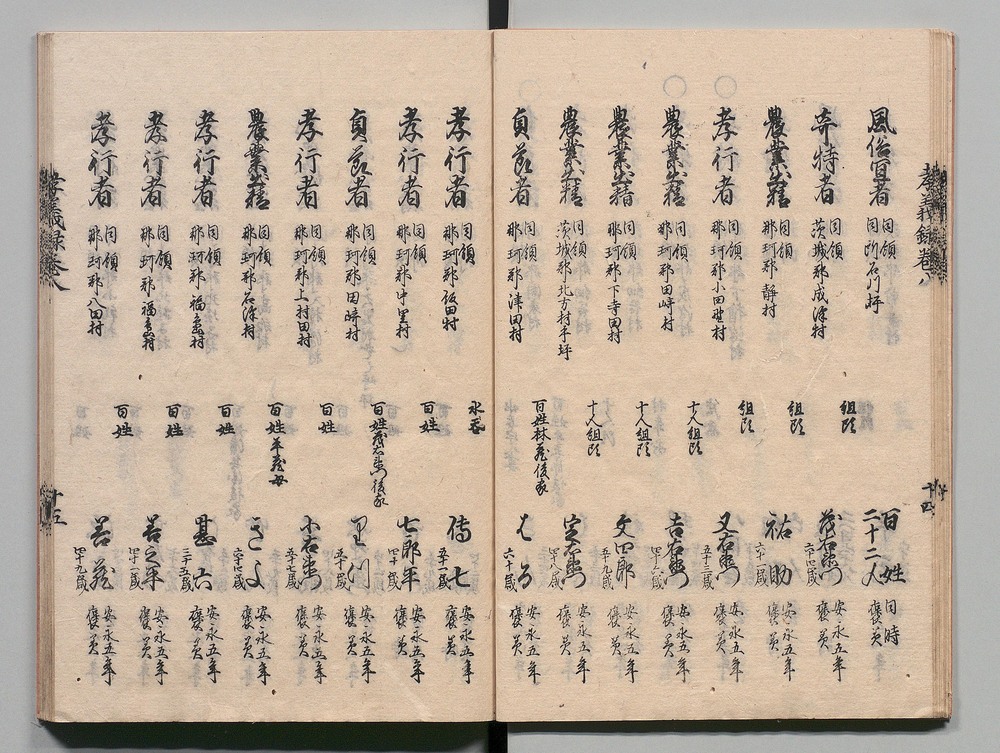 孝義録巻八
風俗宜者 同領 同所石川坪 百姓二十二人 同時褒美
奇特者 同領 茨城郡成澤村 組頭 茂右衛門 六十四歳 安永五年褒美
農業出精 同領 那珂郡静村 組頭 祐助 六十一歳 安永五年褒美
孝行者 同領 那珂郡小田野村 組頭 又右衛門 五十三歳 安永五年褒美
農業出精 同領 那珂郡田崎村 十人組頭 吉右衛門 四十六歳 安永五年褒美
農業出精 同領 那珂郡下寺田村 十人組頭 文四郎 五十九歳 安永五年褒美
農業出精 同領 茨城郡北方村平坪 十人組頭 定右衛門 四十八歳 安永五年褒美
貞節者 同領 那珂郡津田村 百姓林蔵後家 はる 六十歳 安永五年褒美
孝行者 同領 那珂郡飯田村 水呑 傳七 五十一歳 安永五年褒美
孝行者 同領 那珂郡中里村 百姓 七郎平 四十歳 安永五年褒美
貞節者 同領 那珂郡田崎村 百姓茂右衛門後家 里つ 五十歳 安永五年褒美
孝行者 同領 那珂郡上村田村 百姓 小右衛門 五十七歳 安永五年褒美
農業出精 同領 那珂郡石澤村 百姓平蔵母 きよ 六十四歳 安永五年褒美
孝行者 同領 那珂郡 百姓 甚六 三十五歳 安永五年褒美
孝行者 同領 那珂郡 百姓 善之平 四十一歳 安永五年褒美
孝行者 同領 那珂郡八田村 百姓 善蔵 四十九歳 安永五年褒美
孝義録巻八 十五